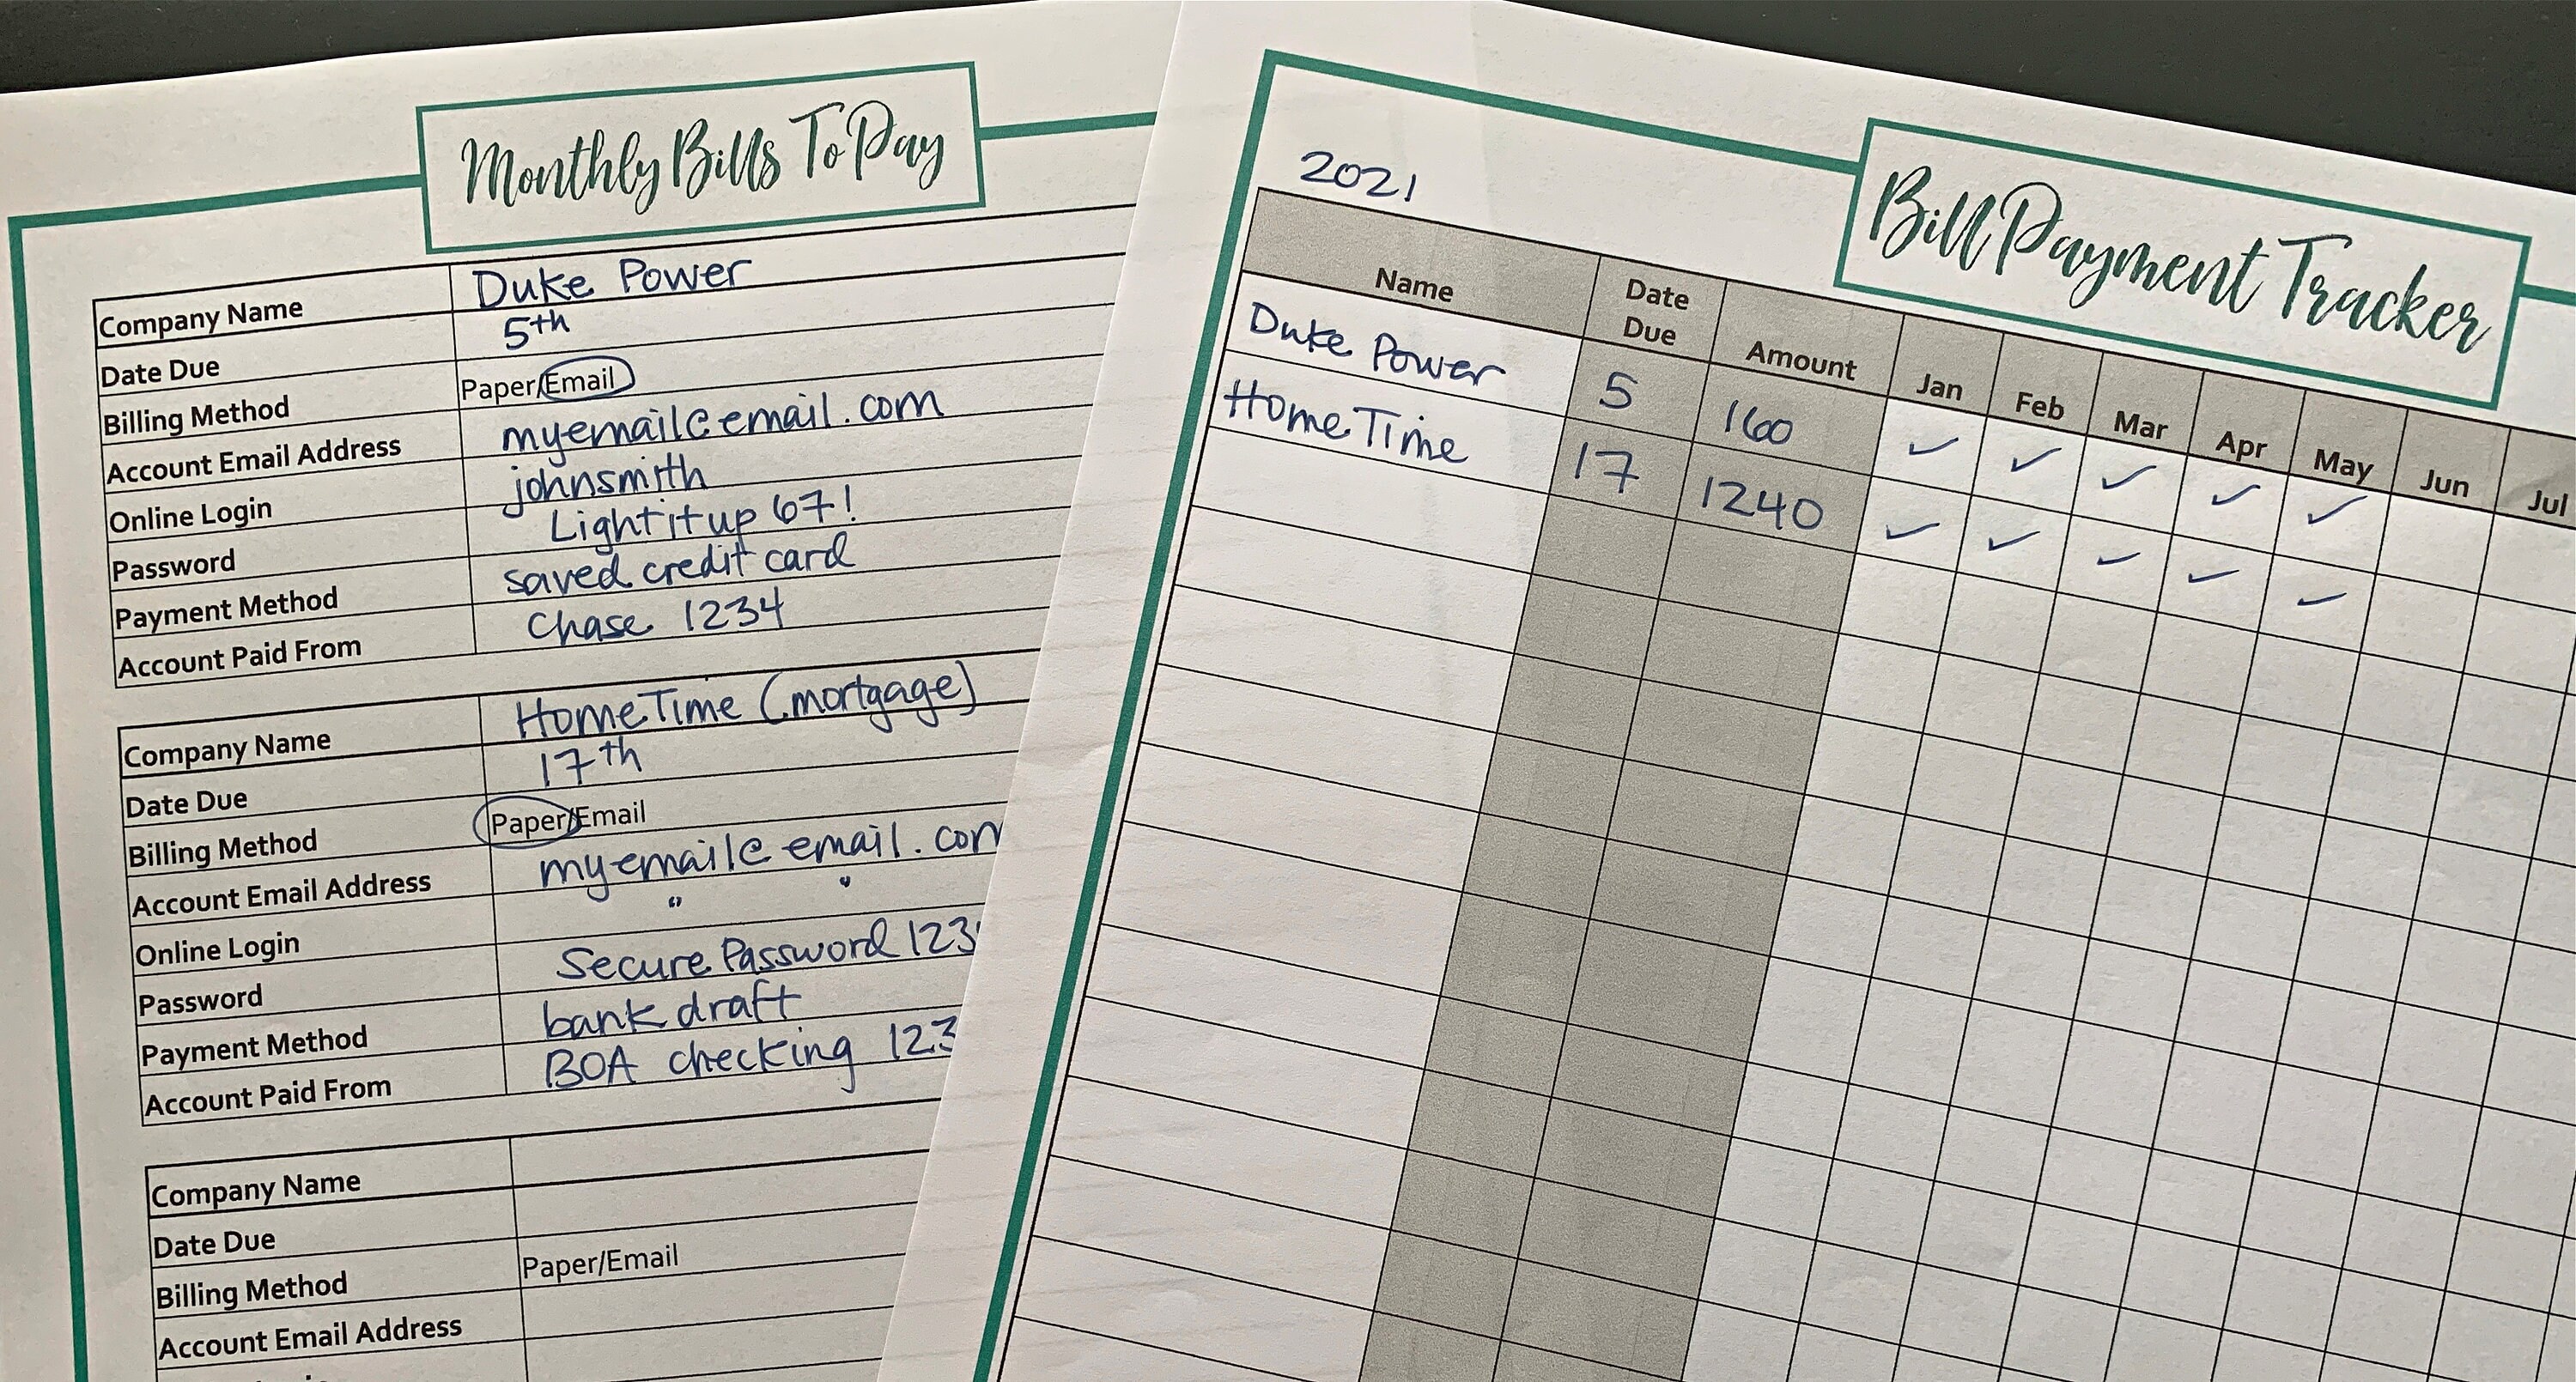 Monthly Bills To Pay
Company Name Duke Power
Date Due 5th
Billing Method Paper/Email
Account Email Address myemail@email.com
Online Login johnsmith
Password Lightitup 67!
Payment Method saved credit card
Account Paid From Chase 1234
Company Name HomeTime (mortgage)
Date Due 17th
Billing Method Paper/Email
Account Email Address myemail@email.com
Online Login " "
Password Secure Password 123
Payment Method bank draft
Account Paid From BOA checking 123
Company Name
Date Due
Billing Method Paper/Email
Account Email Address
2021
Bill Payment Tracker
Name Date Due Amount Jan Feb Mar Apr May Jun Jul
Duke Power 5 160 ✓ ✓ ✓ ✓ ✓
HomeTime 17 1240 ✓ ✓ ✓ ✓ ✓